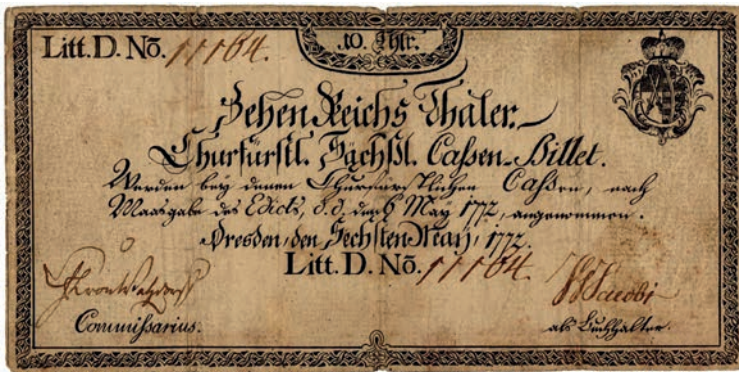 Litt. D. No. 11164.
10. Thlr.
Zehen Reichs Thaler.
Churfürstl. Sächßl. Caßen-Billet.
Werden bey denen Churfürstlichen Caßen, nach
Maasgabe des Edicts, d. d. den 6 May 1772, angenommen.
Dresden, den Sechsten May, 1772.
Litt. D. No. 11164.
Jacobi
Commißarius.
als Buchhalter.